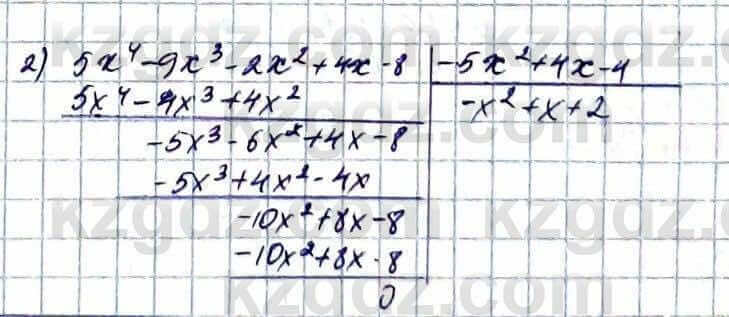 2) 5x⁴-9x³-2x²+4x-8 | -5x²+4x-4
5x⁴-4x³+4x² -x²+x+2
-5x³-6x²+4x-8
-5x³+4x²-4x
-10x²+8x-8
-10x²+8x-8
0
kzgdz.com